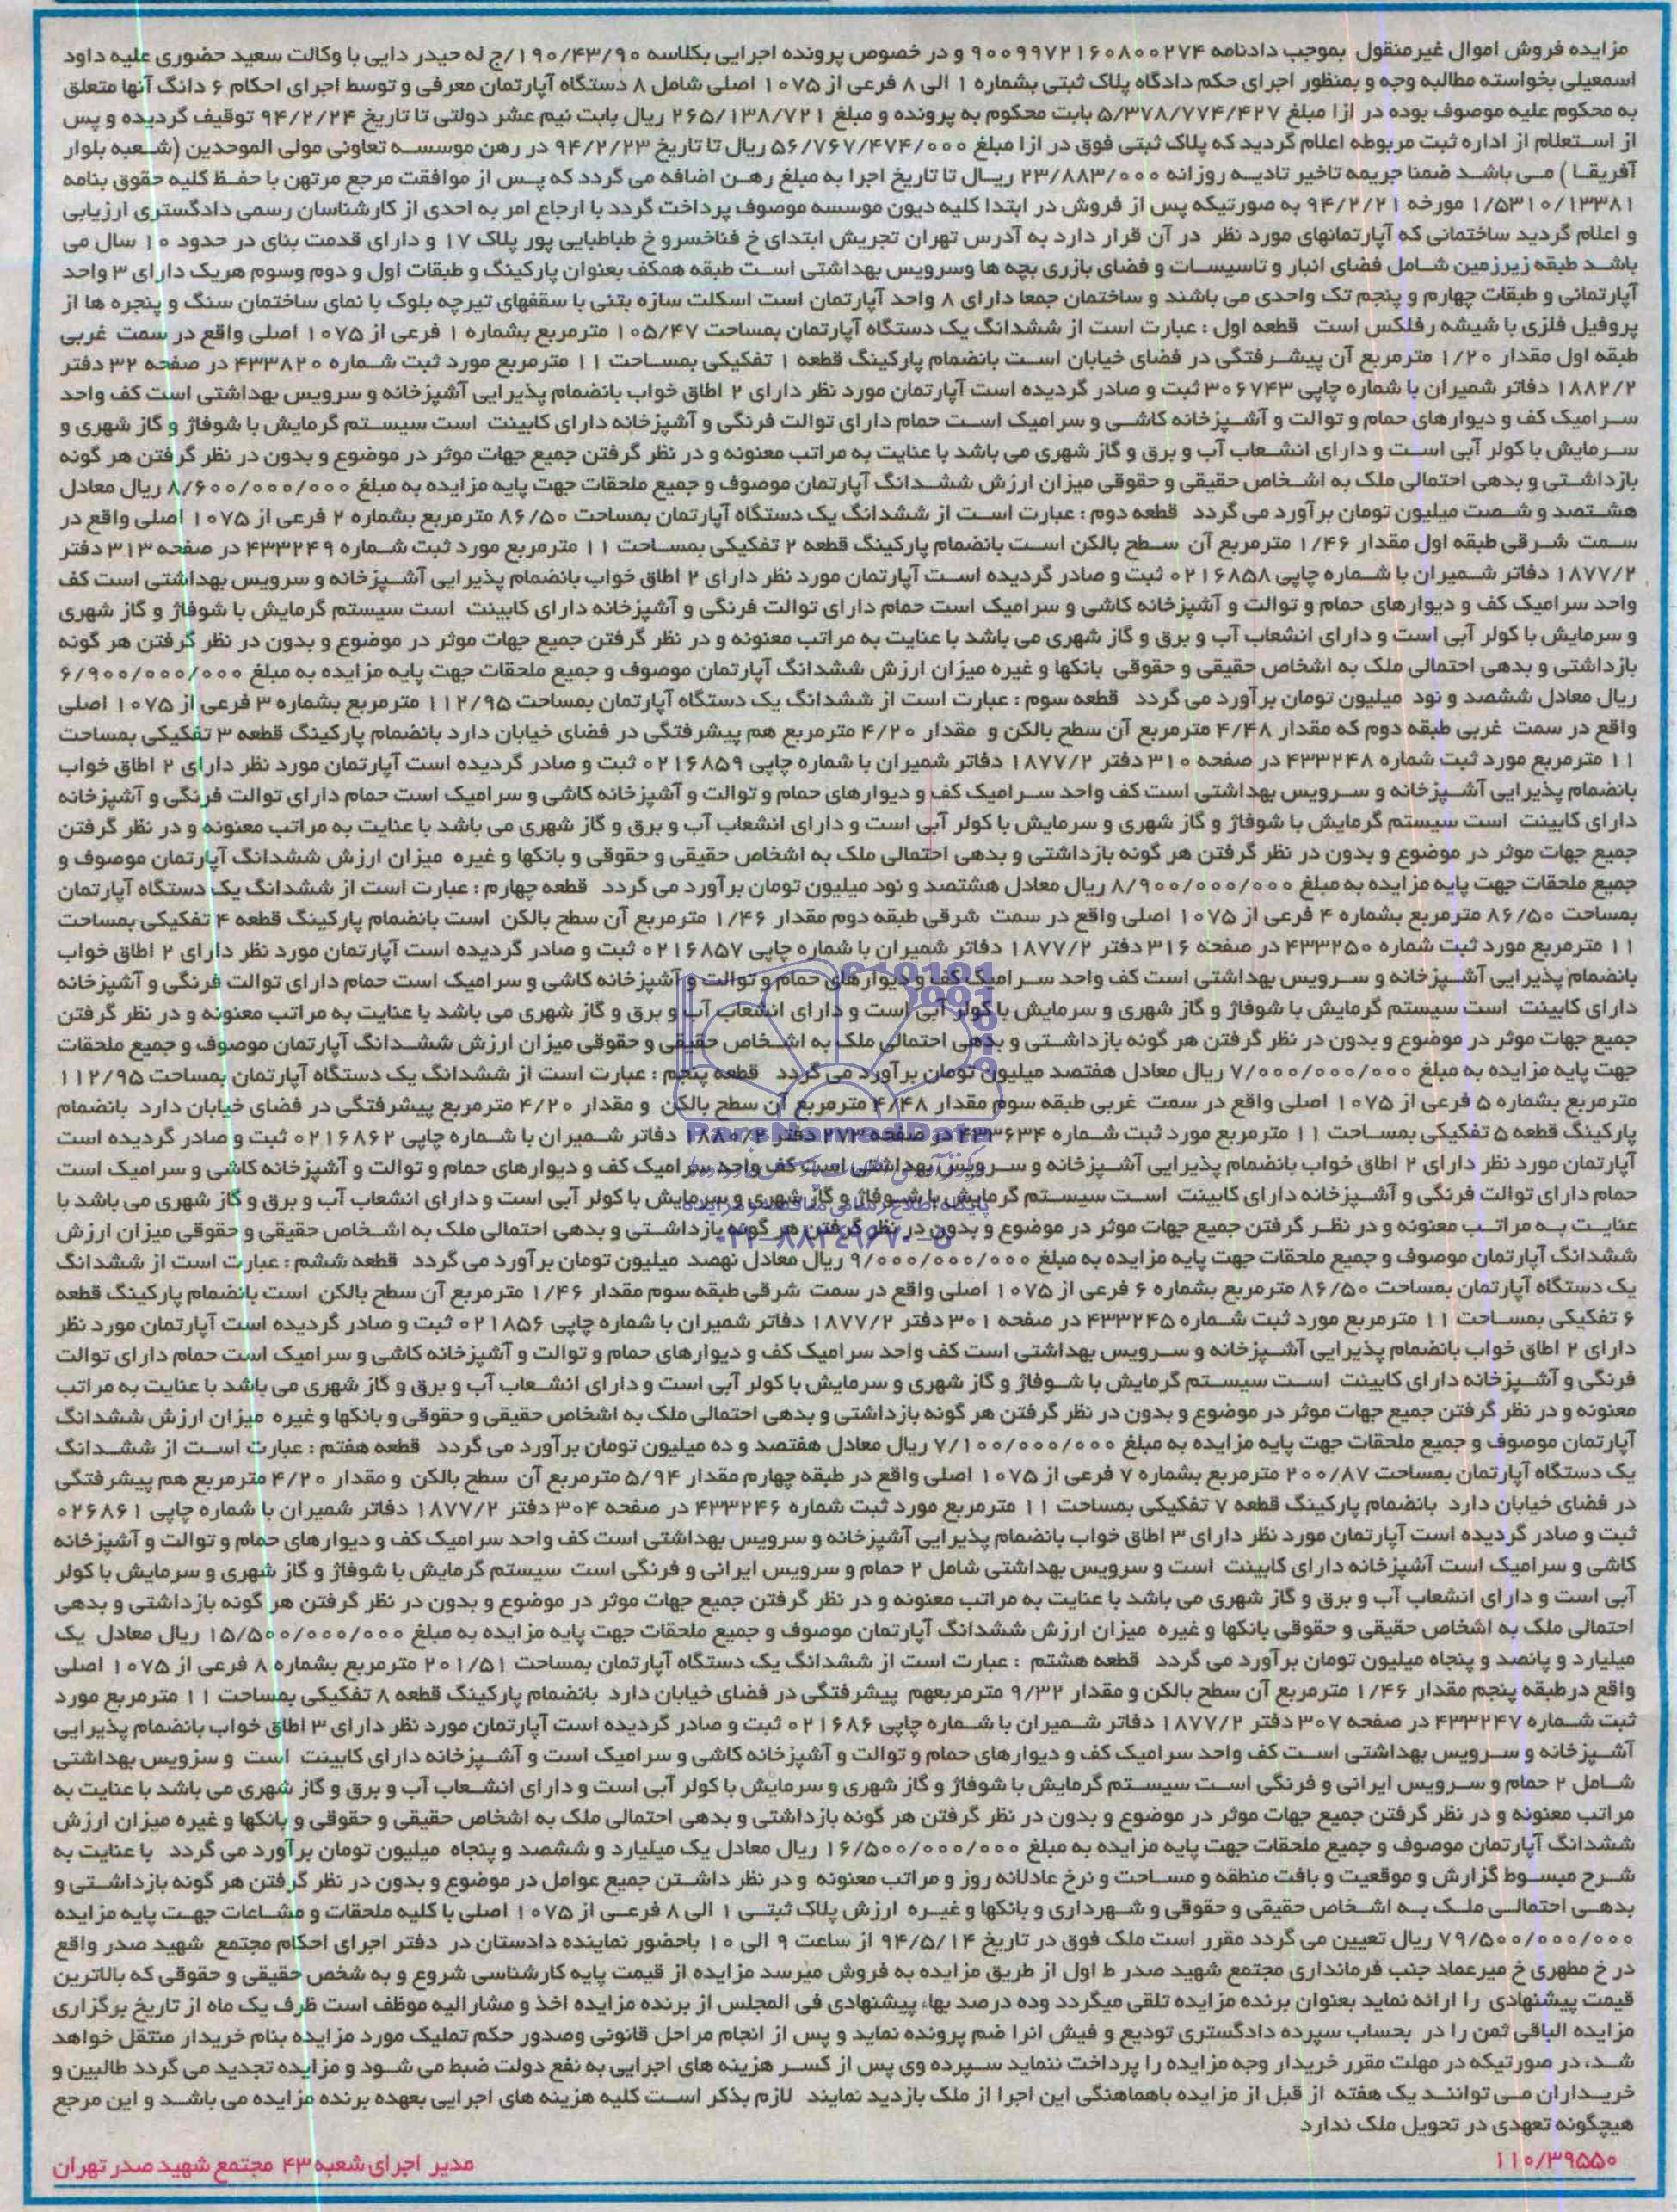 مزایده فروش اموال غیرمنقول بموجب دادنامه ۹۰۰۹۹۷۲۱۶۰۸۰۰۲۷۴ و در خصوص پرونده اجرایی بکلاسه ۱۹۰/۴۳/۹۰/ج له حیدر دایی با وکالت سعید حضوری علیه داود
اسمعیلی بخواسته مطالبه وجه و بمنظور اجرای حکم دادگاه پلاک ثبتی بشماره ۱ الی ۸ فرعی از ۱۰۷۵ اصلی شامل ۸ دستگاه آپارتمان معرفی و توسط اجرای احکام ۶ دانگ آنها متعلق
به محکوم علیه موصوف بوده در ازا مبلغ ۵/۳۷۸/۷۷۴/۴۲۷ بابت محکوم به پرونده و مبلغ ۲۶۵/۱۳۸/۷۲۱ ریال بابت نیم عشر دولتی تا تاریخ ۹۴/۲/۲۴ توقیف گردیده و پس
از استعلام از اداره ثبت مربوطه اعلام گردید که پلاک ثبتی فوق در ازا مبلغ ۵۶/۷۶۷/۴۷۴/۰۰۰ ریال تا تاریخ ۹۴/۲/۲۳ در رهن موسسه تعاونی مولی الموحدین (شعبه بلوار
آفریقا) می باشد ضمنا جریمه تاخیر تادیه روزانه ۲۳/۸۸۳/۰۰۰ ریال تا تاریخ اجرا به مبلغ رهن اضافه می گردد که پس از موافقت مرجع مرتهن با حفظ کلیه حقوق بنامه
۱/۵۳۱۰/۱۳۳۸۱ مورخه ۹۴/۲/۲۱ به صورتیکه پس از فروش در ابتدا کلیه دیون موسسه موصوف پرداخت گردد با ارجاع امر به احدی از کارشناسان رسمی دادگستری ارزیابی
و اعلام گردید ساختمانی که آپارتمانهای مورد نظر در آن قرار دارد به آدرس تهران تجریش ابتدای خ فناخسرو خ طباطبایی پور پلاک ۱۷ و دارای قدمت بنای در حدود ۱۰ سال می
باشد طبقه زیرزمین شامل فضای انبار و تاسیسات و فضای بازری بچه ها وسرویس بهداشتی است طبقه همکف بعنوان پارکینگ و طبقات اول و دوم وسوم هریک دارای ۳ واحد
آپارتمانی و طبقات چهارم و پنجم تک واحدی می باشند و ساختمان جمعا دارای ۸ واحد آپارتمان است اسکلت سازه بتنی با سقفهای تیرچه بلوک با نمای ساختمان سنگ و پنجره ها از
پروفیل فلزی با شیشه رفلکس است قطعه اول : عبارت است از ششدانگ یک دستگاه آپارتمان بمساحت ۱۰۵/۴۷ مترمربع بشماره ۱ فرعی از ۱۰۷۵ اصلی واقع در سمت غربی
طبقه اول مقدار ۱/۲۰ مترمربع آن پیشرفتگی در فضای خیابان است بانضمام پارکینگ قطعه ۱ تفکیکی بمساحت ۱۱ مترمربع مورد ثبت شماره ۴۳۳۸۲۰ در صفحه ۳۲ دفتر
۱۸۸۲/۲ دفاتر شمیران با شماره چاپی ۳۰۶۷۴۳ ثبت و صادر گردیده است آپارتمان مورد نظر دارای ۲ اطاق خواب بانضمام پذیرایی آشپزخانه و سرویس بهداشتی است کف واحد
سرامیک کف و دیوارهای حمام و توالت و آشپزخانه کاشی و سرامیک است حمام دارای توالت فرنگی و آشپزخانه دارای کابینت است سیستم گرمایش با شوفاژ و گاز شهری و
سرمایش با کولر آبی است و دارای انشعاب آب و برق و گاز شهری می باشد با عنایت به مراتب معنونه و در نظر گرفتن جمیع جهات موثر در موضوع و بدون در نظر گرفتن هر گونه
بازداشتی و بدهی احتمالی ملک به اشخاص حقیقی و حقوقی میزان ارزش ششدانگ آپارتمان موصوف و جمیع ملحقات جهت پایه مزایده به مبلغ ۸/۶۰۰/۰۰۰/۰۰۰ ریال معادل
هشتصد و شصت میلیون تومان برآورد می گردد قطعه دوم : عبارت است از ششدانگ یک دستگاه آپارتمان بمساحت ۸۶/۵۰ مترمربع بشماره ۲ فرعی از ۱۰۷۵ اصلی واقع در
سمت شرقی طبقه اول مقدار ۱/۴۶ مترمربع آن سطح بالکن است بانضمام پارکینگ قطعه ۲ تفکیکی بمساحت ۱۱ مترمربع مورد ثبت شماره ۴۳۳۲۴۹ در صفحه ۳۱۳ دفتر
۱۸۷۷/۲ دفاتر شمیران با شماره چاپی ۰۲۱۶۸۵۸ ثبت و صادر گردیده است آپارتمان مورد نظر دارای ۲ اطاق خواب بانضمام پذیرایی آشپزخانه و سرویس بهداشتی است کف
واحد سرامیک کف و دیوارهای حمام و توالت و آشپزخانه کاشی و سرامیک است حمام دارای توالت فرنگی و آشپزخانه دارای کابینت است سیستم گرمایش با شوفاژ و گاز شهری
و سرمایش با کولر آبی است و دارای انشعاب آب و برق و گاز شهری می باشد با عنایت به مراتب معنونه و در نظر گرفتن جمیع جهات موثر در موضوع و بدون در نظر گرفتن هر گونه
بازداشتی و بدهی احتمالی ملک به اشخاص حقیقی و حقوقی بانکها و غیره میزان ارزش ششدانگ آپارتمان موصوف و جمیع ملحقات جهت پایه مزایده به مبلغ ۶/۹۰۰/۰۰۰/۰۰۰
ریال معادل ششصد و نود میلیون تومان برآورد می گردد قطعه سوم : عبارت است از ششدانگ یک دستگاه آپارتمان بمساحت ۱۱۲/۹۵ مترمربع بشماره ۳ فرعی از ۱۰۷۵ اصلی
واقع در سمت غربی طبقه دوم که مقدار ۴/۴۸ مترمربع آن سطح بالکن و مقدار ۴/۲۰ مترمربع هم پیشرفتگی در فضای خیابان دارد بانضمام پارکینگ قطعه ۳ تفکیکی بمساحت
۱۱ مترمربع مورد ثبت شماره ۴۳۳۲۴۸ در صفحه ۳۱۰ دفتر ۱۸۷۷/۲ دفاتر شمیران با شماره چاپی ۰۲۱۶۸۵۹ ثبت و صادر گردیده است آپارتمان مورد نظر دارای ۲ اطاق خواب
بانضمام پذیرایی آشپزخانه و سرویس بهداشتی است کف واحد سرامیک کف و دیوارهای حمام و توالت و آشپزخانه کاشی و سرامیک است حمام دارای توالت فرنگی و آشپزخانه
دارای کابینت است سیستم گرمایش با شوفاژ و گاز شهری و سرمایش با کولر آبی است و دارای انشعاب آب و برق و گاز شهری می باشد با عنایت به مراتب معنونه و در نظر گرفتن
جمیع جهات موثر در موضوع و بدون در نظر گرفتن هر گونه بازداشتی و بدهی احتمالی ملک به اشخاص حقیقی و حقوقی و بانکها و غیره میزان ارزش ششدانگ آپارتمان موصوف و
جمیع ملحقات جهت پایه مزایده به مبلغ ۸/۹۰۰/۰۰۰/۰۰۰ ریال معادل هشتصد و نود میلیون تومان برآورد می گردد قطعه چهارم : عبارت است از ششدانگ یک دستگاه آپارتمان
بمساحت ۸۶/۵۰ مترمربع بشماره ۴ فرعی از ۱۰۷۵ اصلی واقع در سمت شرقی طبقه دوم مقدار ۱/۴۶ مترمربع آن سطح بالکن است بانضمام پارکینگ قطعه ۴ تفکیکی بمساحت
۱۱ مترمربع مورد ثبت شماره ۴۳۳۲۵۰ در صفحه ۳۱۶ دفتر ۱۸۷۷/۲ دفاتر شمیران با شماره چاپی ۰۲۱۶۸۵۷ ثبت و صادر گردیده است آپارتمان مورد نظر دارای ۲ اطاق خواب
بانضمام پذیرایی آشپزخانه و سرویس بهداشتی است کف واحد سرامیک کف و دیوارهای حمام و توالت و آشپزخانه کاشی و سرامیک است حمام دارای توالت فرنگی و آشپزخانه
دارای کابینت است سیستم گرمایش با شوفاژ و گاز شهری و سرمایش با کولر آبی است و دارای انشعاب آب و برق و گاز شهری می باشد با عنایت به مراتب معنونه و در نظر گرفتن
جمیع جهات موثر در موضوع و بدون در نظر گرفتن هر گونه بازداشتی و بدهی احتمالی ملک به اشخاص حقیقی و حقوقی میزان ارزش ششدانگ آپارتمان موصوف و جمیع ملحقات
جهت پایه مزایده به مبلغ ۷/۰۰۰/۰۰۰/۰۰۰ ریال معادل هفتصد میلیون تومان برآورد می گردد قطعه پنجم : عبارت است از ششدانگ یک دستگاه آپارتمان بمساحت ۱۱۲/۹۵
مترمربع بشماره ۵ فرعی از ۱۰۷۵ اصلی واقع در سمت غربی طبقه سوم مقدار ۴/۴۸ مترمربع آن سطح بالکن و مقدار ۴/۲۰ مترمربع پیشرفتگی در فضای خیابان دارد بانضمام
پارکینگ قطعه ۵ تفکیکی بمساحت ۱۱ مترمربع مورد ثبت شماره ۴۳۳۶۳۴ در صفحه ۲۷۳ دفتر ۱۸۸۰/۲ دفاتر شمیران با شماره چاپی ۰۲۱۶۸۶۲ ثبت و صادر گردیده است
آپارتمان مورد نظر دارای ۲ اطاق خواب بانضمام پذیرایی آشپزخانه و سرویس بهداشتی است کف واحد سرامیک کف و دیوارهای حمام و توالت و آشپزخانه کاشی و سرامیک است
حمام دارای توالت فرنگی و آشپزخانه دارای کابینت است سیستم گرمایش با شوفاژ و گاز شهری و سرمایش با کولر آبی است و دارای انشعاب آب و برق و گاز شهری می باشد با
عنایت به مراتب معنونه و در نظر گرفتن جمیع جهات موثر در موضوع و بدون در نظر گرفتن هر گونه بازداشتی و بدهی احتمالی ملک به اشخاص حقیقی و حقوقی میزان ارزش
ششدانگ آپارتمان موصوف و جمیع ملحقات جهت پایه مزایده به مبلغ ۹/۰۰۰/۰۰۰/۰۰۰ ریال معادل نهصد میلیون تومان برآورد می گردد قطعه ششم : عبارت است از ششدانگ
یک دستگاه آپارتمان بمساحت ۸۶/۵۰ مترمربع بشماره ۶ فرعی از ۱۰۷۵ اصلی واقع در سمت شرقی طبقه سوم مقدار ۱/۴۶ مترمربع آن سطح بالکن است بانضمام پارکینگ قطعه
۶ تفکیکی بمساحت ۱۱ مترمربع مورد ثبت شماره ۴۳۳۲۴۵ در صفحه ۳۰۱ دفتر ۱۸۷۷/۲ دفاتر شمیران با شماره چاپی ۰۲۱۸۵۶ ثبت و صادر گردیده است آپارتمان مورد نظر
دارای ۲ اطاق خواب بانضمام پذیرایی آشپزخانه و سرویس بهداشتی است کف واحد سرامیک کف و دیوارهای حمام و توالت و آشپزخانه کاشی و سرامیک است حمام دارای توالت
فرنگی و آشپزخانه دارای کابینت است سیستم گرمایش با شوفاژ و گاز شهری و سرمایش با کولر آبی است و دارای انشعاب آب و برق و گاز شهری می باشد با عنایت به مراتب
معنونه و در نظر گرفتن جمیع جهات موثر در موضوع و بدون در نظر گرفتن هر گونه بازداشتی و بدهی احتمالی ملک به اشخاص حقیقی و حقوقی و بانکها و غیره میزان ارزش ششدانگ
آپارتمان موصوف و جمیع ملحقات جهت پایه مزایده به مبلغ ۷/۱۰۰/۰۰۰/۰۰۰ ریال معادل هفتصد و ده میلیون تومان برآورد می گردد قطعه هفتم : عبارت است از ششدانگ
یک دستگاه آپارتمان بمساحت ۲۰۰/۸۷ مترمربع بشماره ۷ فرعی از ۱۰۷۵ اصلی واقع در طبقه چهارم مقدار ۵/۹۴ مترمربع آن سطح بالکن و مقدار ۴/۲۰ مترمربع هم پیشرفتگی
در فضای خیابان دارد بانضمام پارکینگ قطعه ۷ تفکیکی بمساحت ۱۱ مترمربع مورد ثبت شماره ۴۳۳۲۴۶ در صفحه ۳۰۴ دفتر ۱۸۷۷/۲ دفاتر شمیران با شماره چاپی ۰۲۶۸۶۱
ثبت و صادر گردیده است آپارتمان مورد نظر دارای ۳ اطاق خواب بانضمام پذیرایی آشپزخانه و سرویس بهداشتی است کف واحد سرامیک کف و دیوارهای حمام و توالت و آشپزخانه
کاشی و سرامیک است آشپزخانه دارای کابینت است و سرویس بهداشتی شامل ۲ حمام و سرویس ایرانی و فرنگی است سیستم گرمایش با شوفاژ و گاز شهری و سرمایش با کولر
آبی است و دارای انشعاب آب و برق و گاز شهری می باشد با عنایت به مراتب معنونه و در نظر گرفتن جمیع جهات موثر در موضوع و بدون در نظر گرفتن هر گونه بازداشتی و بدهی
احتمالی ملک به اشخاص حقیقی و حقوقی بانکها و غیره میزان ارزش ششدانگ آپارتمان موصوف و جمیع ملحقات جهت پایه مزایده به مبلغ ۱۵/۵۰۰/۰۰۰/۰۰۰ ریال معادل یک
میلیارد و پانصد و پنجاه میلیون تومان برآورد می گردد قطعه هشتم : عبارت است از ششدانگ یک دستگاه آپارتمان بمساحت ۲۰۱/۵۱ مترمربع بشماره ۸ فرعی از ۱۰۷۵ اصلی
واقع درطبقه پنجم مقدار ۱/۴۶ مترمربع آن سطح بالکن و مقدار ۹/۳۲ مترمربعهم پیشرفتگی در فضای خیابان دارد بانضمام پارکینگ قطعه ۸ تفکیکی بمساحت ۱۱ مترمربع مورد
ثبت شماره ۴۳۳۲۴۷ در صفحه ۳۰۷ دفتر ۱۸۷۷/۲ دفاتر شمیران با شماره چاپی ۰۲۱۶۸۶ ثبت و صادر گردیده است آپارتمان مورد نظر دارای ۳ اطاق خواب بانضمام پذیرایی
آشپزخانه و سرویس بهداشتی است کف واحد سرامیک کف و دیوارهای حمام و توالت و آشپزخانه کاشی و سرامیک است و آشپزخانه دارای کابینت است و سرویس بهداشتی
شامل ۲ حمام و سرویس ایرانی و فرنگی است سیستم گرمایش با شوفاژ و گاز شهری و سرمایش با کولر آبی است و دارای انشعاب آب و برق و گاز شهری می باشد با عنایت به
مراتب معنونه و در نظر گرفتن جمیع جهات موثر در موضوع و بدون در نظر گرفتن هر گونه بازداشتی و بدهی احتمالی ملک به اشخاص حقیقی و حقوقی و بانکها و غیره میزان ارزش
ششدانگ آپارتمان موصوف و جمیع ملحقات جهت پایه مزایده به مبلغ ۱۶/۵۰۰/۰۰۰/۰۰۰ ریال معادل یک میلیارد و ششصد و پنجاه میلیون تومان برآورد می گردد با عنایت به
شرح مبسوط گزارش و موقعیت و بافت منطقه و مساحت و نرخ عادلانه روز و مراتب معنونه و در نظر داشتن جمیع عوامل در موضوع و بدون در نظر گرفتن هر گونه بازداشتی و
بدهی احتمالی ملک به اشخاص حقیقی و حقوقی و شهرداری و بانکها و غیره ارزش پلاک ثبتی ۱ الی ۸ فرعی از ۱۰۷۵ اصلی با کلیه ملحقات و مشاعات جهت پایه مزایده
۷۹/۵۰۰/۰۰۰/۰۰۰ ریال تعیین می گردد مقرر است ملک فوق در تاریخ ۹۴/۵/۱۴ از ساعت ۹ الی ۱۰ باحضور نماینده دادستان در دفتر اجرای احکام مجتمع شهید صدر واقع
در خ مطهری خ میرعماد جنب فرمانداری مجتمع شهید صدر ط اول از طریق مزایده به فروش میرسد مزایده از قیمت پایه کارشناسی شروع و به شخص حقیقی و حقوقی که بالاترین
قیمت پیشنهادی را ارائه نماید بعنوان برنده مزایده تلقی میگردد وده درصد بهاء پیشنهادی فی المجلس از برنده مزایده اخذ و مشارالیه موظف است ظرف یک ماه از تاریخ برگزاری
مزایده الباقی ثمن را در بحساب سپرده دادگستری تودیع و فیش انرا ضم پرونده نماید و پس از انجام مراحل قانونی وصدور حکم تملیک مورد مزایده بنام خریدار منتقل خواهد
شد، در صورتیکه در مهلت مقرر خریدار وجه مزایده را پرداخت ننماید سپرده وی پس از کسر هزینه های اجرایی به نفع دولت ضبط می شود و مزایده تجدید می گردد طالبین و
خریداران می توانند یک هفته از قبل از مزایده باهماهنگی این اجرا از ملک بازدید نمایند لازم بذکر است کلیه هزینه های اجرایی بعهده برنده مزایده می باشد و این مرجع
هیچگونه تعهدی در تحویل ملک ندارد
۱۱۰/۳۹۵۵۰
مدیر اجرای شعبه ۴۳ مجتمع شهید صدر تهران
ParsNamadData